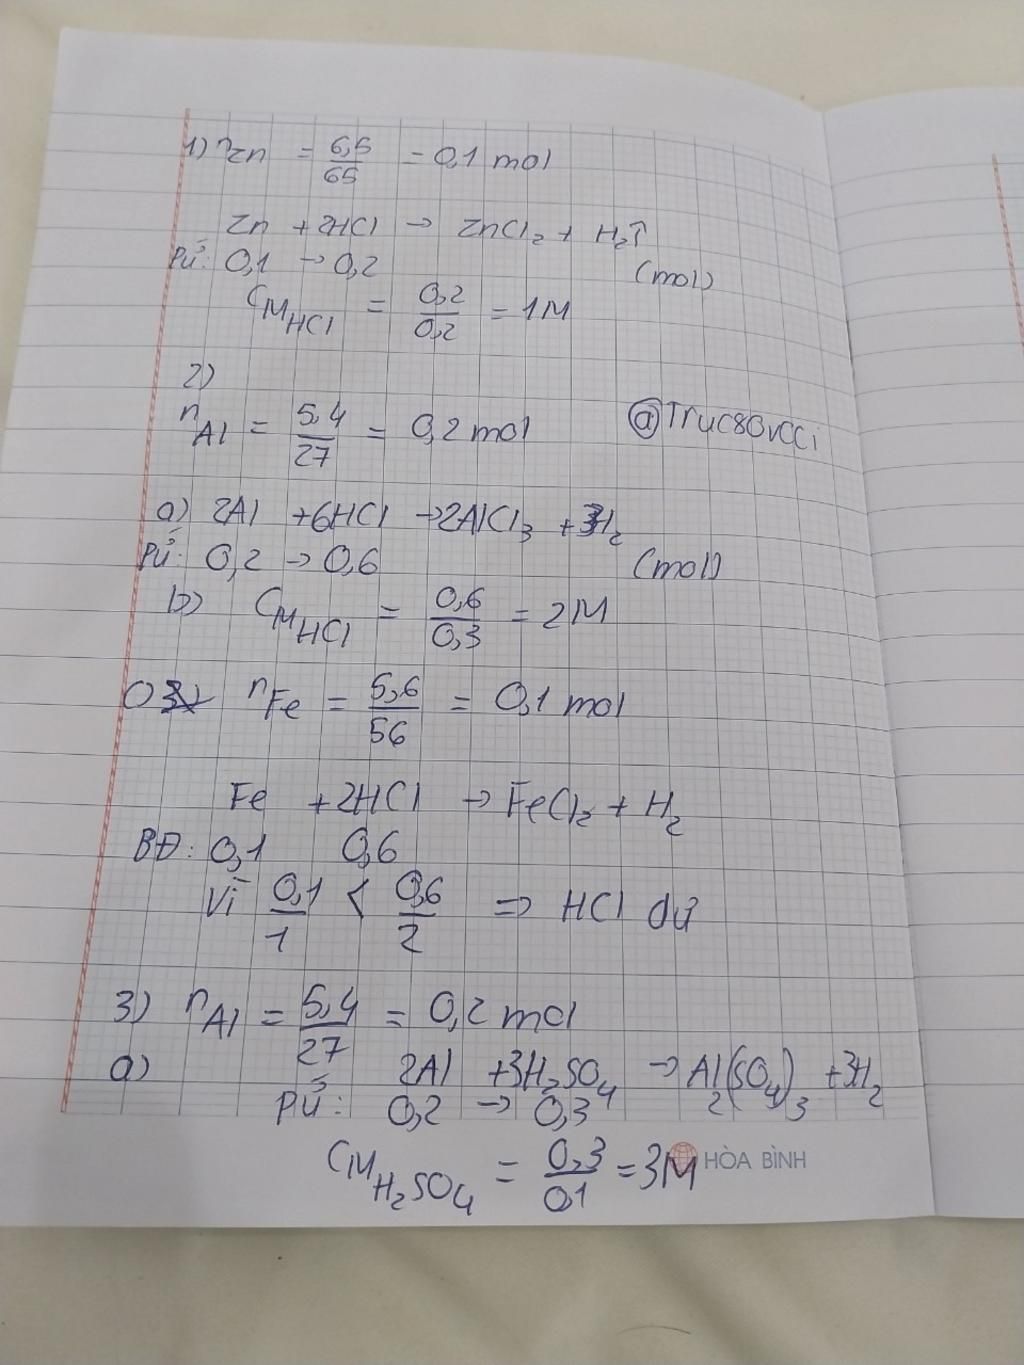 1) nZn = 6,5/65 = 0,1 mol
Zn + 2HCl → ZnCl₂ + H₂↑
PƯ: 0,1 → 0,2 (mol)
CM HCl = 0,2/0,2 = 1M
2)
nAl = 5,4/27 = 0,2 mol @Truc80vcci
a) 2Al + 6HCl → 2AlCl₃ + 3H₂
PƯ: 0,2 → 0,6 (mol)
b) CM HCl = 0,6/0,3 = 2M
nFe = 5,6/56 = 0,1 mol
Fe + 2HCl → FeCl₂ + H₂
BĐ: 0,1 0,6
Vì 0,1/1 < 0,6/2 => HCl dư
3) nAl = 5,4/27 = 0,2 mol
a) 2Al + 3H₂SO₄ → Al₂(SO₄)₃ + 3H₂
PƯ: 0,2 → 0,3
CM H₂SO₄ = 0,3/0,1 = 3M
HÒA BÌNH